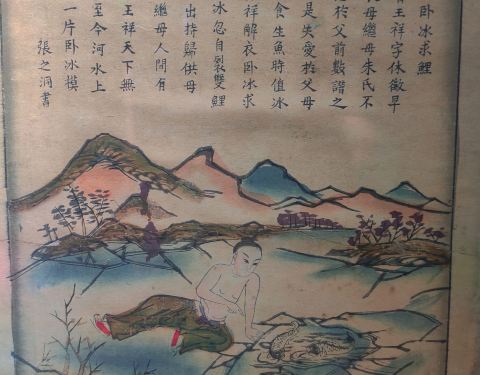 卧冰求鯉
王祥字休徵早
母繼母朱氏不
於父前數譖之
是失愛於父母
食生魚時值冰
祥解衣卧冰求
冰忽自裂雙鯉
出持歸供母
繼母人間有
王祥天下無
至今河水上
一片卧冰模
張之洞書